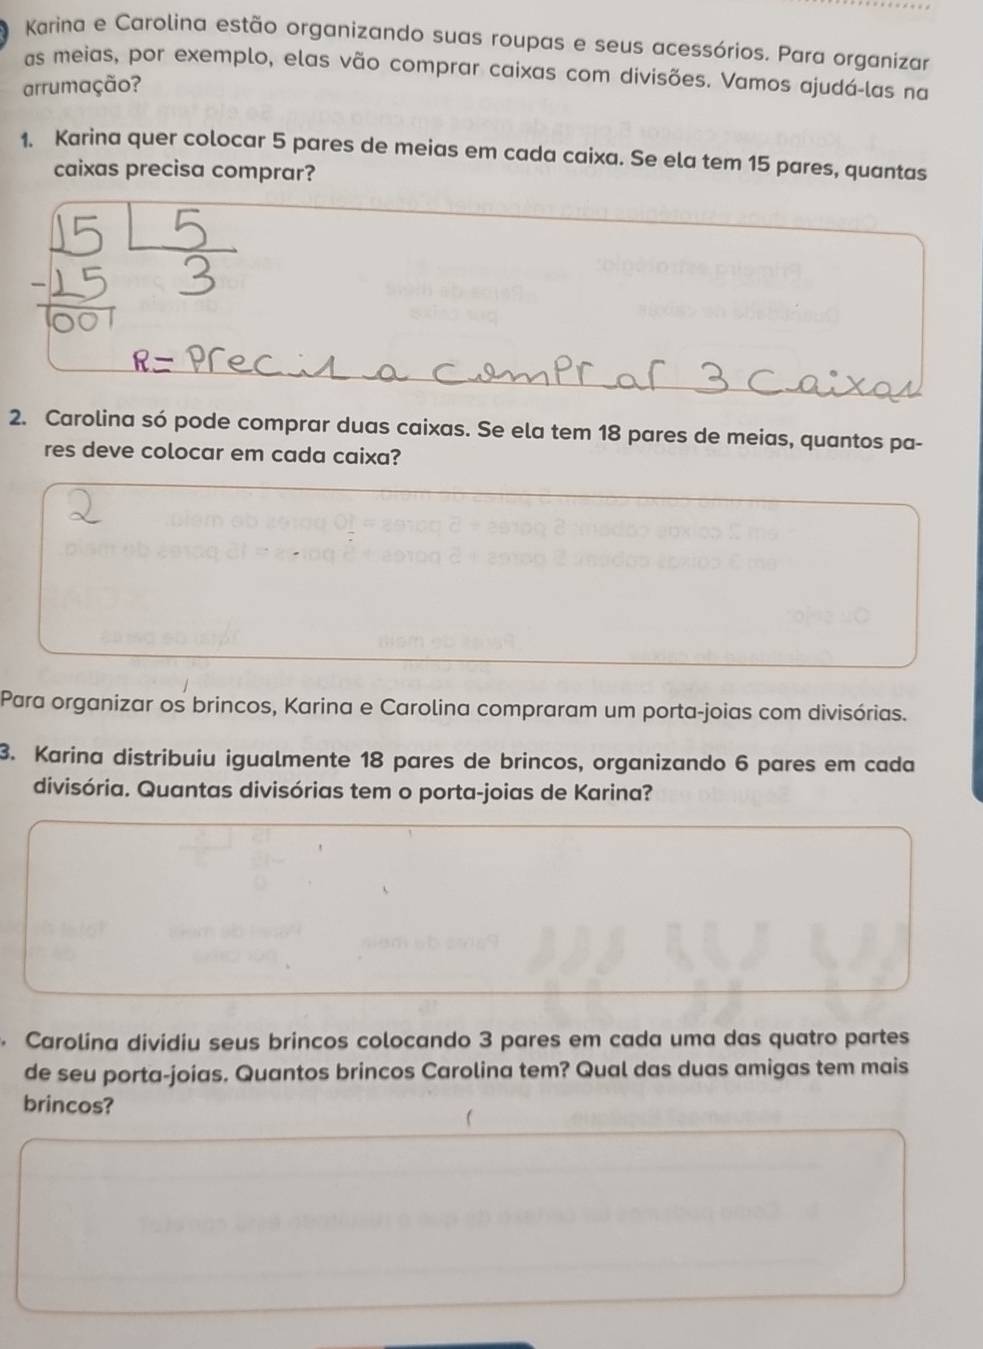 Karina e Carolina estão organizando suas roupas e seus acessórios. Para organizar
as meias, por exemplo, elas vão comprar caixas com divisões. Vamos ajudá-las na
arrumação?
1. Karina quer colocar 5 pares de meias em cada caixa. Se ela tem 15 pares, quantas
caixas precisa comprar?
15 5
-15 3
001
R= precisa comprar 3 caixas
2. Carolina só pode comprar duas caixas. Se ela tem 18 pares de meias, quantos pa-
res deve colocar em cada caixa?
2
Para organizar os brincos, Karina e Carolina compraram um porta-joias com divisórias.
3. Karina distribuiu igualmente 18 pares de brincos, organizando 6 pares em cada
divisória. Quantas divisórias tem o porta-joias de Karina?
Carolina dividiu seus brincos colocando 3 pares em cada uma das quatro partes
de seu porta-joias. Quantos brincos Carolina tem? Qual das duas amigas tem mais
brincos?